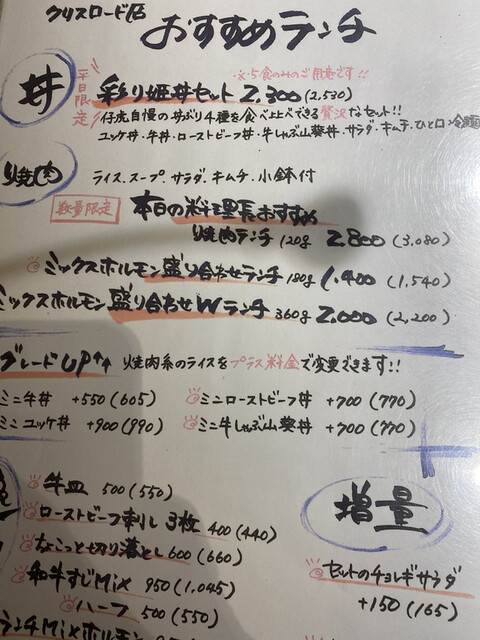 クリスロード店
おすすめランチ
丼
平日限定
※5食のみのご用意です!!
彩り姫丼セット 2,300 (2,530)
仔虎自慢の丼ぶり4種を食べ比べできる贅沢なセット!!
ユッケ丼・牛丼・ローストビーフ丼・牛しゃぶ山葵丼・サラダ・キムチ・ひと口冷麺
焼肉
ライス・スープ・サラダ・キムチ・小鉢付
数量限定
本日の料理長おすすめ
焼肉ランチ 120g 2,800 (3,080)
ミックスホルモン盛り合わせランチ 180g 1,400 (1,540)
ミックスホルモン盛り合わせWランチ 360g 2,000 (2,200)
グレードUP↑↑ 焼肉系のライスをプラス料金で変更できます!!
ミニ牛丼 +550(605)
ミニローストビーフ丼 +700(770)
ミニユッケ丼 +900(990)
ミニ牛しゃぶ山葵丼 +700(770)
牛皿 500(550)
ローストビーフ刺し 3枚 400(440)
ちょこっと切り落とし 600(660)
和牛すじMix 950(1,045)
ハーフ 500(550)
ランチMixホルモン
増量
セットのチョレギサラダ
+150(165)